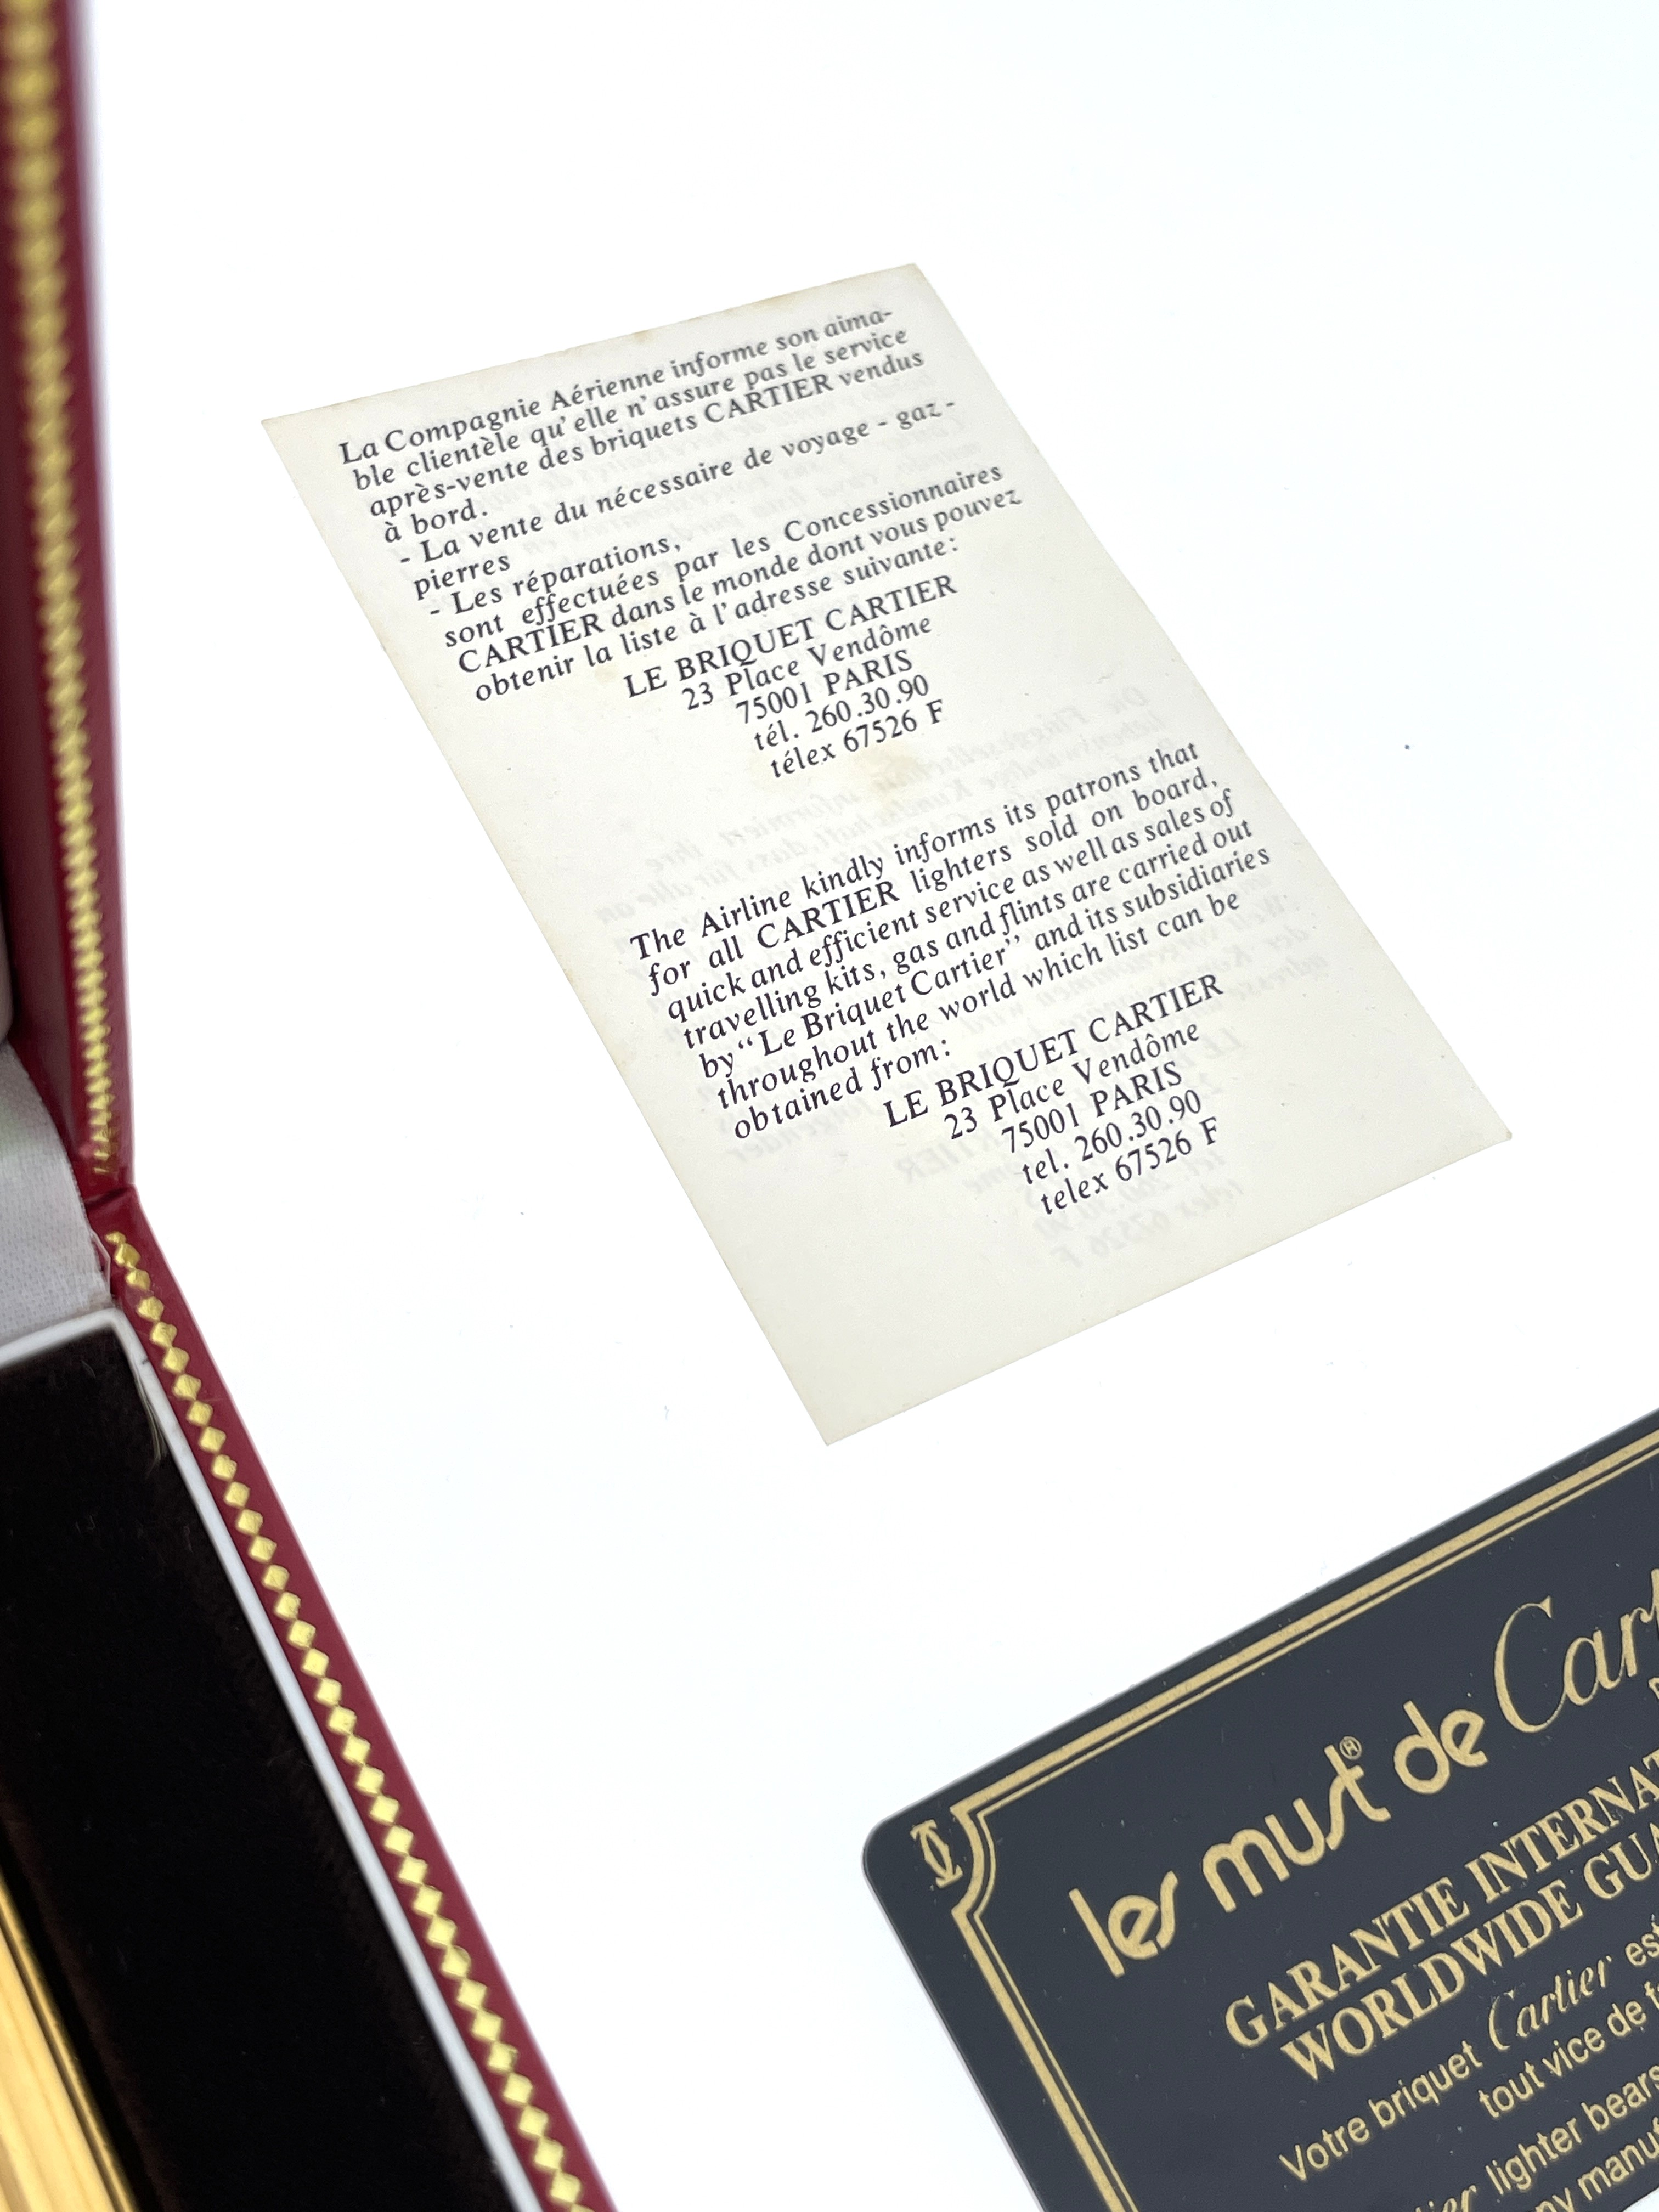 La Compagnie Aérienne informe son aima-
ble clientèle qu'elle n'assure pas le service
après-vente des briquets CARTIER vendus
à bord.
- La vente du nécessaire de voyage - gaz -
pierres
- Les réparations,
sont effectuées par les Concessionnaires
CARTIER dans le monde dont vous pouvez
obtenir la liste à l'adresse suivante:
LE BRIQUET CARTIER
23 Place Vendôme
75001 PARIS
tél. 260.30.90
télex 67526 F
The Airline kindly informs its patrons that
for all CARTIER lighters sold on board,
quick and efficient service as well as sales of
travelling kits, gas and flints are carried out
by "Le Briquet Cartier" and its subsidiaries
throughout the world which list can be
obtained from:
LE BRIQUET CARTIER
23 Place Vendôme
75001 PARIS
tel. 260.30.90
telex 67526 F
les must® de
GARANTIE
WORLDWIDE
Votre briquet Cartier
tout vice de
lighter bears